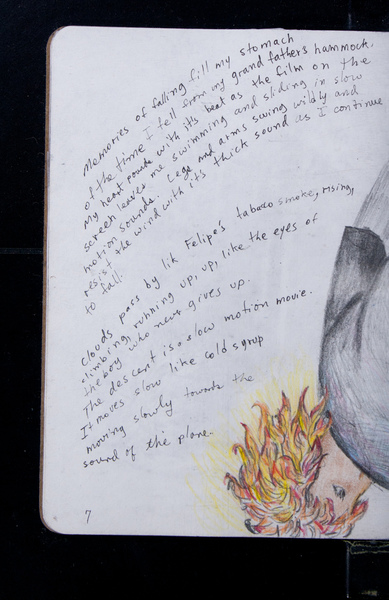 Memories of falling fill my stomach
of the time I fell from my grand father's hammock.
My heart pounds with its beat as the film on the
screen leaves me swimming and sliding in slow
motion sounds. Legs and arms swing wildly and
resist the wind with its thick sound as I continue
to fall.
Clouds pass by lik Felipe's tabaco smoke, rising,
climbing, running up, up, like the eyes of
the boy who never gives up.
The descent is a slow motion movie.
It moves slow like cold syrup
moving slowly towards the
sound of the plane.
7